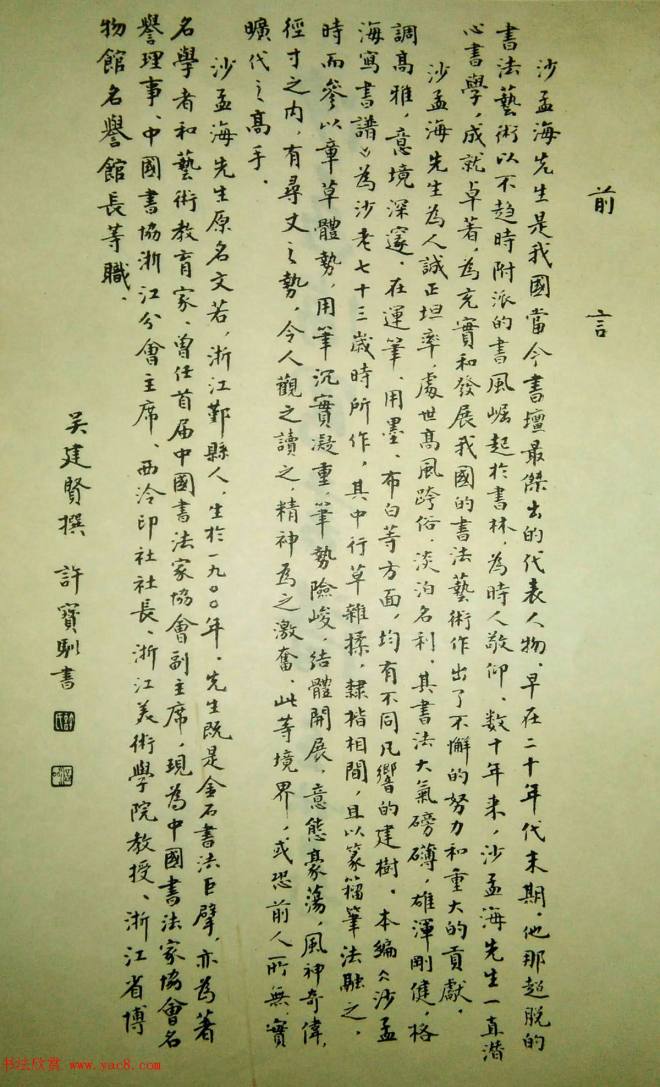 前言
沙孟海先生是我國當今書壇最傑出的代表人物、早在二十年代末期，他那超脫的
書法藝術以不趋時附派的書風崛起於書林，為時人敬仰、数十年来，沙孟海先生一直潜
心書學，成就卓著，為充實和發展我國的書法藝術作出了不懈的努力和重大的貢獻．
沙孟海先生為人誠正坦率，處世高風跨俗，淡泊名利，其書法大氣磅礴，雄渾剛健，格
調高雅，意境深邃，在運筆、用墨、布白等方面，均有不同凡響的建樹．本編《沙孟
海寫書譜》為沙老七十三歲時所作，其中行草雜揉，隸楷相間，且以篆籀筆法融之，
時而參以章草體勢，用筆沉實凝重，筆勢險峻，結體開展，意態豪蕩，風神奇偉，
徑寸之内，有尋丈之勢，令人觀之讀之，精神為之激奮，此等境界，或恐前人所無，實
曠代之高手．
沙孟海先生原名文若，浙江鄞縣人，生於一九〇〇年．先生既是金石書法巨擘，亦為著
名學者和藝術教育家、曾任首届中國書法家協會副主席，現為中國書法家協會名
譽理事、中國書協浙江分會主席、西泠印社社長、浙江美術學院教授、浙江省博
物館名譽館長等職．
吴建賢撰 許寶馴書
书法欣赏 www.yac8.com